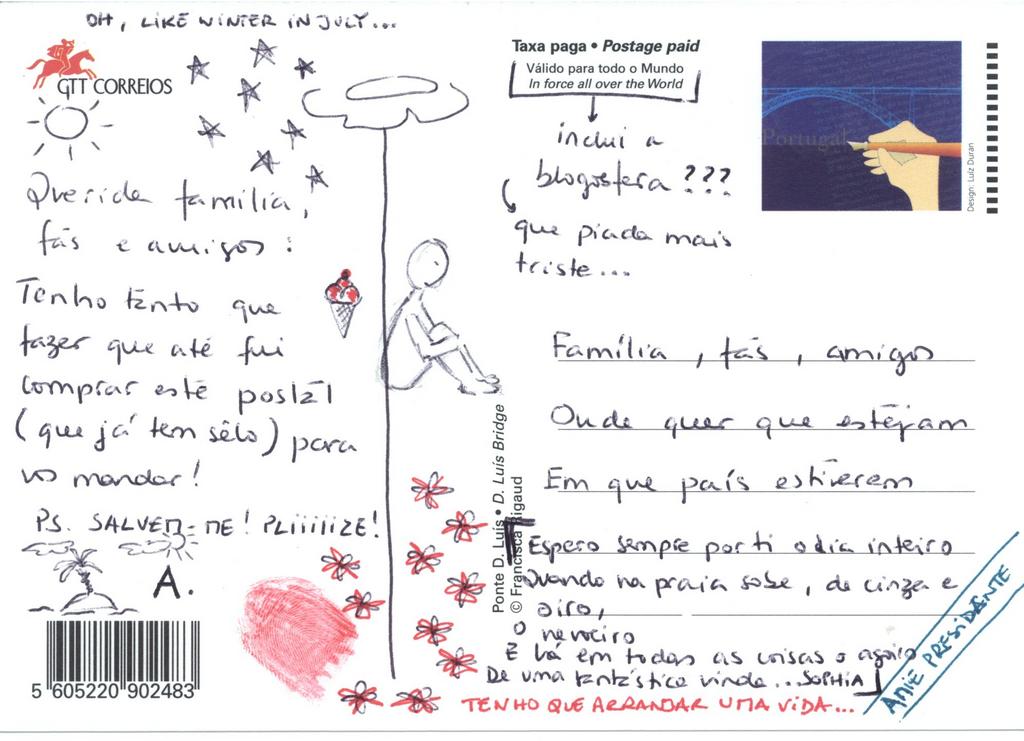 OH, LIKE WINTER IN JULY...
CTT CORREIOS
Querida família,
fãs e amigos:
Tenho tanto que
fazer que até fui
comprar este postal
(que já tem sêlo) para
vos mandar!
PS. SALVEM-ME! PLIIIIIIZE!
A.
5 605220 902483
Taxa paga • Postage paid
Válido para todo o Mundo
In force all over the World
inclui a
blogosfera ???
que piada mais
triste...
Portugal
Design: Luiz Duran
Ponte D. Luís • D. Luís Bridge
© Francisca Rigaud
Família, fãs, amigos
Onde quer que estejam
Em que país estiverem
Espero sempre por ti o dia inteiro
Quando na praia sobe, de cinza e
oiro,
O nevoeiro
E há em todas as coisas o agoiro
De uma fantástica vinda... SOPHIA
TENHO QUE ARRANJAR UMA VIDA...
AMIE PRESIDANTE